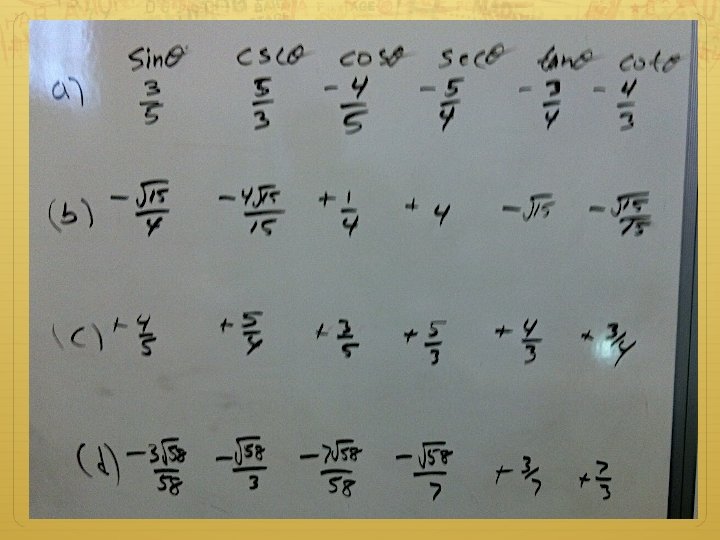 sinθ cscθ cosθ secθ tanθ cotθ
a) 3/5 5/3 -4/5 -5/4 -3/4 -4/3
(b) -√15/4 -4√15/15 +1/4 +4 -√15 -√15/15
(c) +4/5 +5/4 +3/5 +5/3 +4/3 +3/4
(d) -3√58/58 -√58/3 -7√58/58 -√58/7 +3/7 +7/3